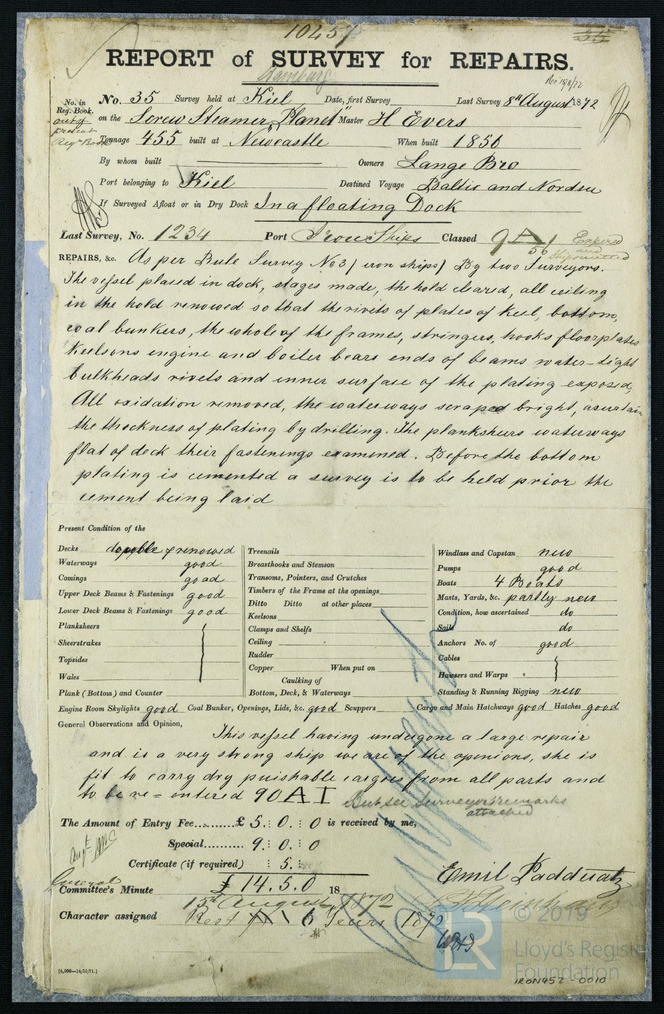 10451
REPORT of SURVEY for REPAIRS.
Hamburg
No. in Reg. Book.
out of present Reg. Book
No. 35 Survey held at Kiel Date, first Survey Last Survey 8th August 1872
on the Screw Steamer "Planet" Master H Evers
Tonnage 455 built at Newcastle When built 1856
By whom built Owners Lange Bro
Port belonging to Kiel Destined Voyage Baltic and Nordsea
If Surveyed Afloat or in Dry Dock In a floating Dock
Last Survey, No. 1234 Port Iron Ships Classed 9A 56 Expired
REPAIRS, &c. As per Rule Survey No 3 (iron ships) By two Surveyors.
The vessel placed in dock, stages made, the hold cleared, all ceiling
in the hold renowed so that the rivets of plates of keel, bottom,
coal bunkers, the whole of the frames, stringers, hooks floorplates
keelsons engine and boiler bears ends of beams water-tight
bulkheads rivets and inner surface of the plating exposed,
All oxidation removed, the waterways scraped bright, ascertain
the thickness of plating by drilling. The planksheers waterways
flat of deck their fastenings examined. Before the bottom
plating is cemented a survey is to be held prior the
cement being laid
Present Condition of the
Decks double & renowed
Waterways good
Comings good
Upper Deck Beams & Fastenings good
Lower Deck Beams & Fastenings good
Planksheers
Sheerstrakes
Topsides
Wales
Plank (Bottom) and Counter
Treenails
Breasthooks and Stemson
Transoms, Pointers, and Crutches
Timbers of the Frame at the openings
Ditto Ditto at other places
Keelsons
Clamps and Shelfs
Ceiling
Rudder
Copper When put on
Caulking of
Bottom, Deck, & Waterways
Windlass and Capstan new
Pumps good
Boats 4 Boats
Masts, Yards, &c. partly new
Condition, how ascertained do
Sails do
Anchors No. of good
Cables
Hawsers and Warps
Standing & Running Rigging new
Engine Room Skylights good Coal Bunker, Openings, Lids, &c. good Scuppers Cargo and Main Hatchways good Hatches good
General Observations and Opinion,
This vessel having undergone a large repair
and is a very strong ship we are of the opinions, she is
fit to carry dry puishable cargoes from all parts and
to be re=entered 90 A I
But see Surveyors remarks attached
The Amount of Entry Fee £ 5 : 0 : 0 is received by me,
Special 9 : 0 : 0
Certificate (if required) : 5 :
£ 14.5.0
Emil Padderatz
General
Committee's Minute 18
15th August 1872
Character assigned Rest 6 Years 1872
[6,000—14/10/71.]
© 2019
Lloyd's Register
Foundation
LR
IRON457-0010